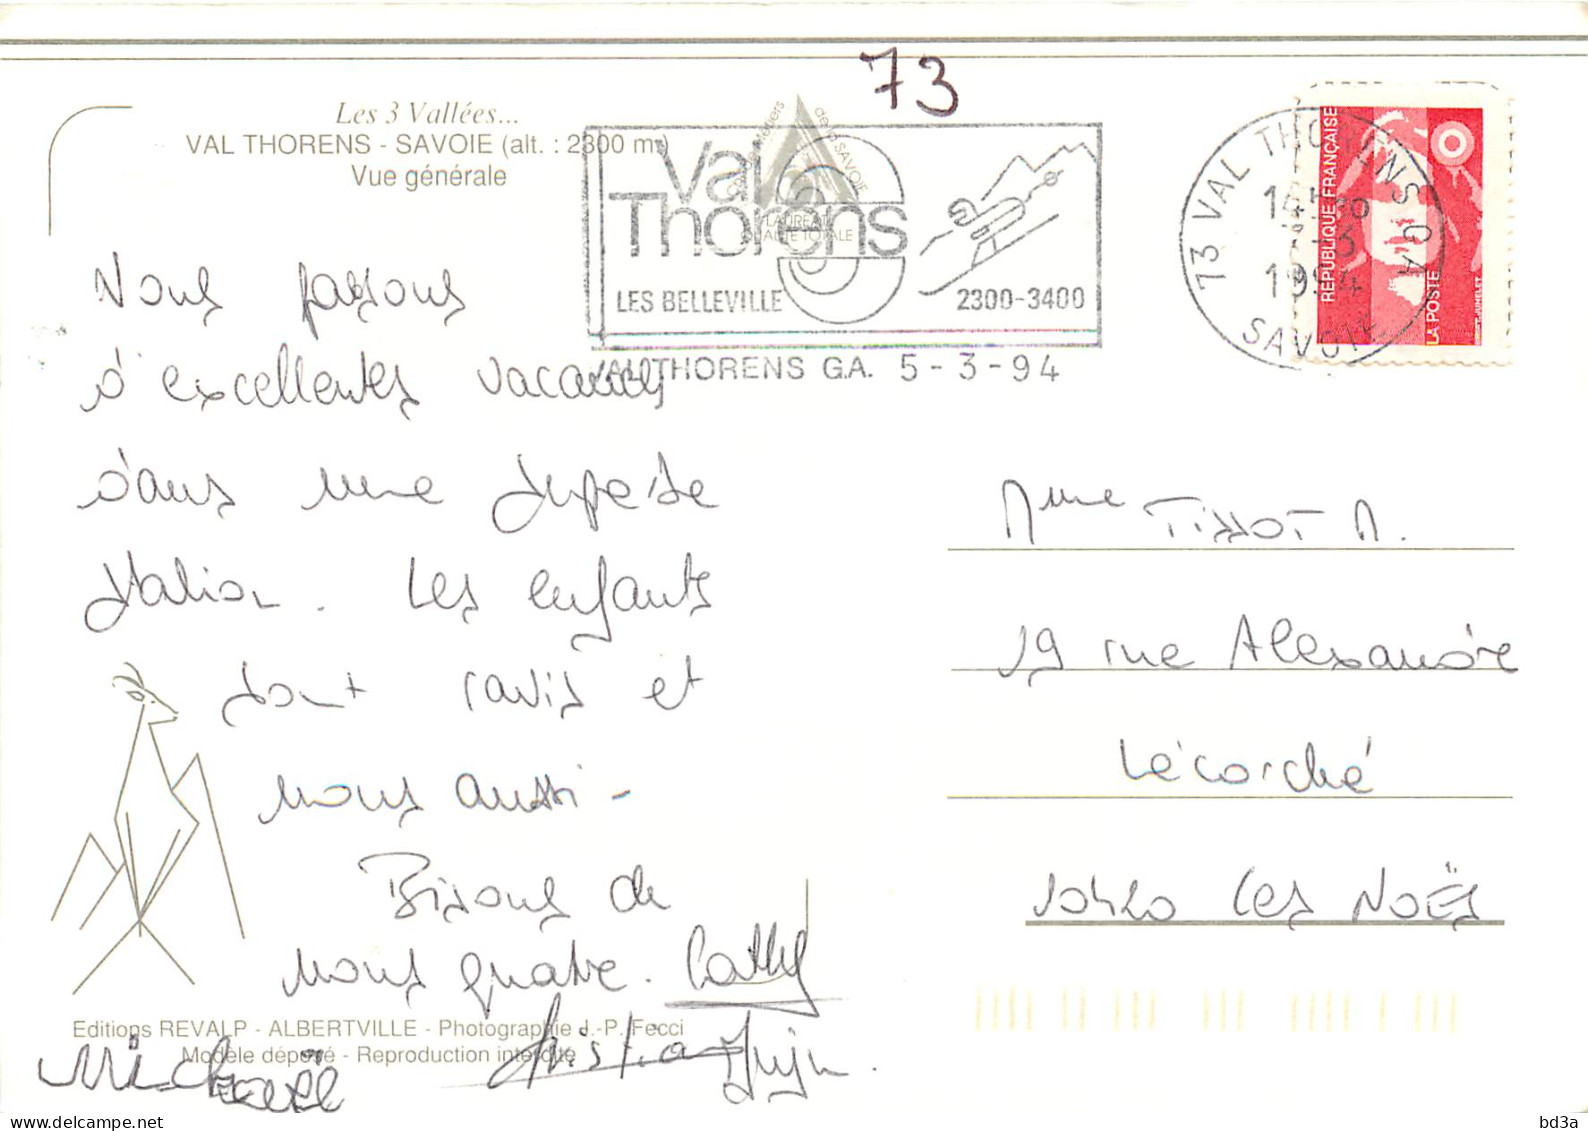 73
Les 3 Vallées...
VAL THORENS - SAVOIE (alt. : 2300 m)
Vue générale
de la SAVOIE
LAURÉAT
QUALITÉ TOTALE
Val
Thorens
LES BELLEVILLE
2300-3400
VAL THORENS G.A. 5 - 3 - 94
73 VAL THORENS G.A.
1994
SAVOIE
RÉPUBLIQUE FRANÇAISE
LA POSTE
Nous passons
d'excellentes vacances
dans une superbe
station. Les enfants
sont ravis et
nous aussi -
Bisous de
nous quatre. Cathy
Michaël
Mme TISSOT M.
19 rue Alexandre
Lécorché
10420 LES NOËS
Editions REVALP - ALBERTVILLE - Photographie J.-P. Fecci
Modèle déposé - Reproduction interdite
bd3a